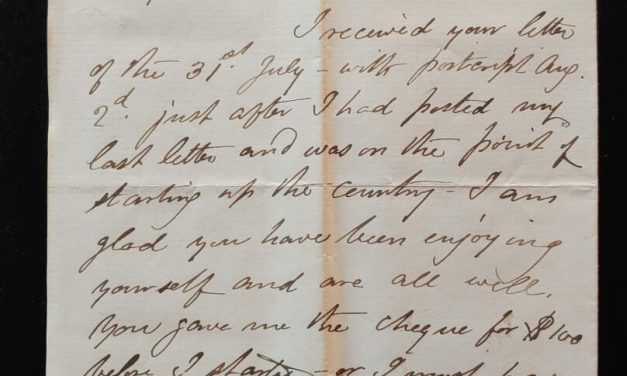 I received your letter
of the 31st. July - with postcript Aug.
2d. just after I had posted my
last letter and was on the point of
starting up the country - I am
glad you have been enjoying
yourself and are all well.
You gave me the cheque for $100
before I started - or I must have